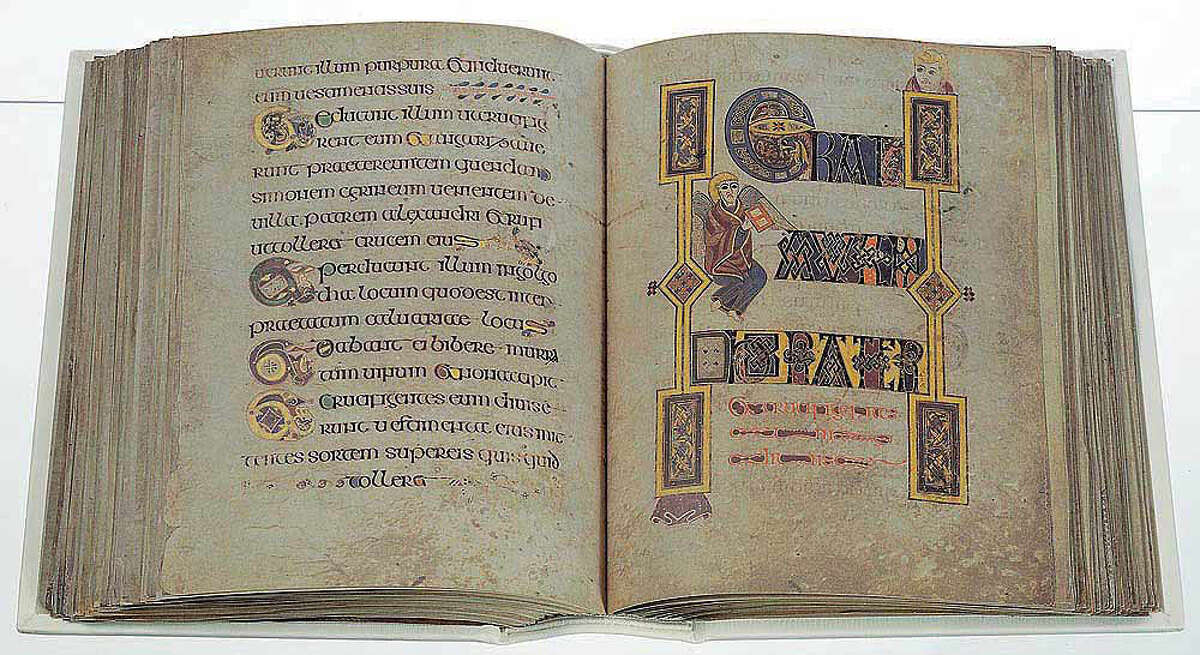 uerunt illum purpura & induerunt
eum uestimentis suis
Et educunt illum ut crucifig
erent eum & angariaue
runt praetereuntem quendam
simonem cyrineum uenientem de
uilla patrem alexandri & rufi
ut tolleret crucem eius
Et perducunt illum in golgo
tha locum quod est inter
praetatum caluariae locus
Et dabant ei bibere murra
tum uinum & non accepit
Et crucifigentes eum diuise
runt uestimenta eius mit
tentes sortem super eis quis quid
tolleret
ERAT
AUTEM
HORA TER
Et crucifigentes
eum
diuise